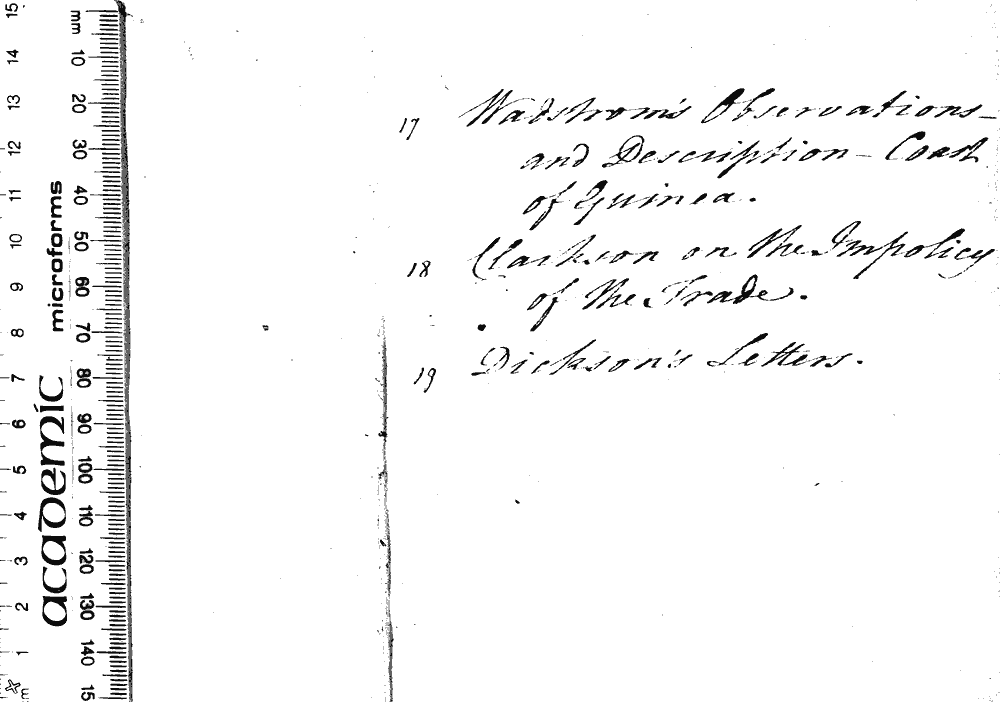 17 Wadstrom's Observations-
and Description - Coast
of Guinea.
18 Clarkson on the Impolicy
of the Trade.
19 Dickson's Letters.
academic microforms
mm 10 20 30 40 50 60 70 80 90 100 110 120 130 140 15
15 14 13 12 11 10 9 8 7 6 5 4 3 2 1